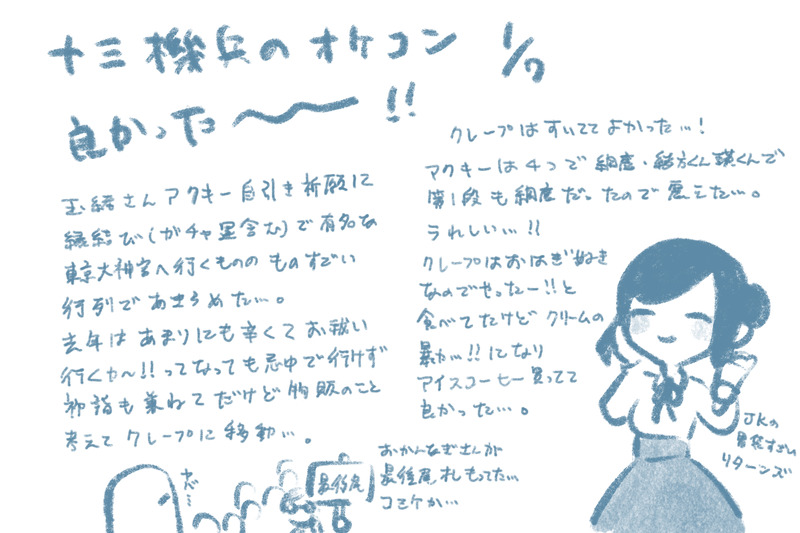 十三機兵のオケコン 1/7
良かった〜!!
玉緒さんアクキー自引き祈願に
縁結び(ガチャ運含む)で有名な
東京大神宮へ行くものの ものすごい
行列であきらめた…。
去年はあまりにも辛くてお祓い
行くか〜!!ってなっても忌中で行けず
初詣も兼ねてだけど物販のこと
考えてクレープに移動…。
ヤバ…
最後尾
おかんなぎさんが
最後尾札もってた…
コミケか…
クレープはすいててよかった…!
アクキーは4つで網口・緒方くん瑛くんで
第1段も網口だったので震えた…。
うれしい…!!
クレープはおはぎ好き
なのでやったー!!と
食べてたけどクリームの
暴力…!!になり
アイスコーヒー買ってて
良かった…。
JKの
胃袋すごい
リターンズ